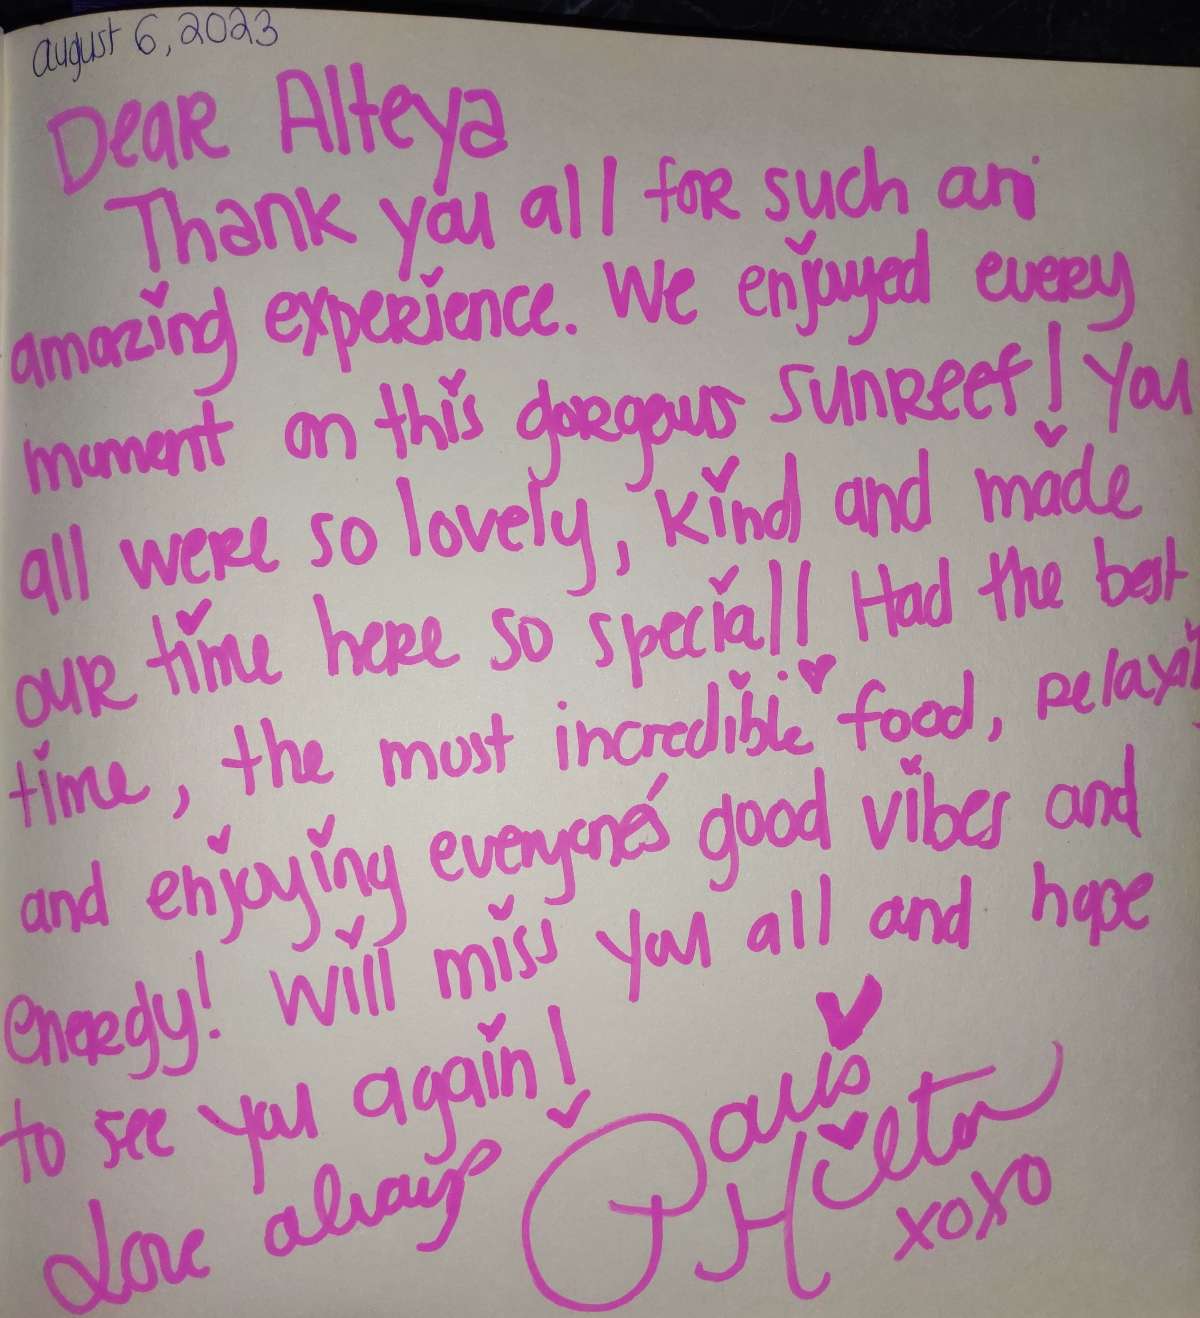 august 6, 2023
Dear Alteya
Thank you all for such an
amazing experience. We enjoyed every
moment on this gorgeous sunreef! You
all were so lovely, kind and made
our time here so special! Had the best
time, the most incredible food, relaxi
and enjoying everyone's good vibes and
energy! Will miss you all and hope
to see you again!
Love always
Paris
Hilton
xoxo